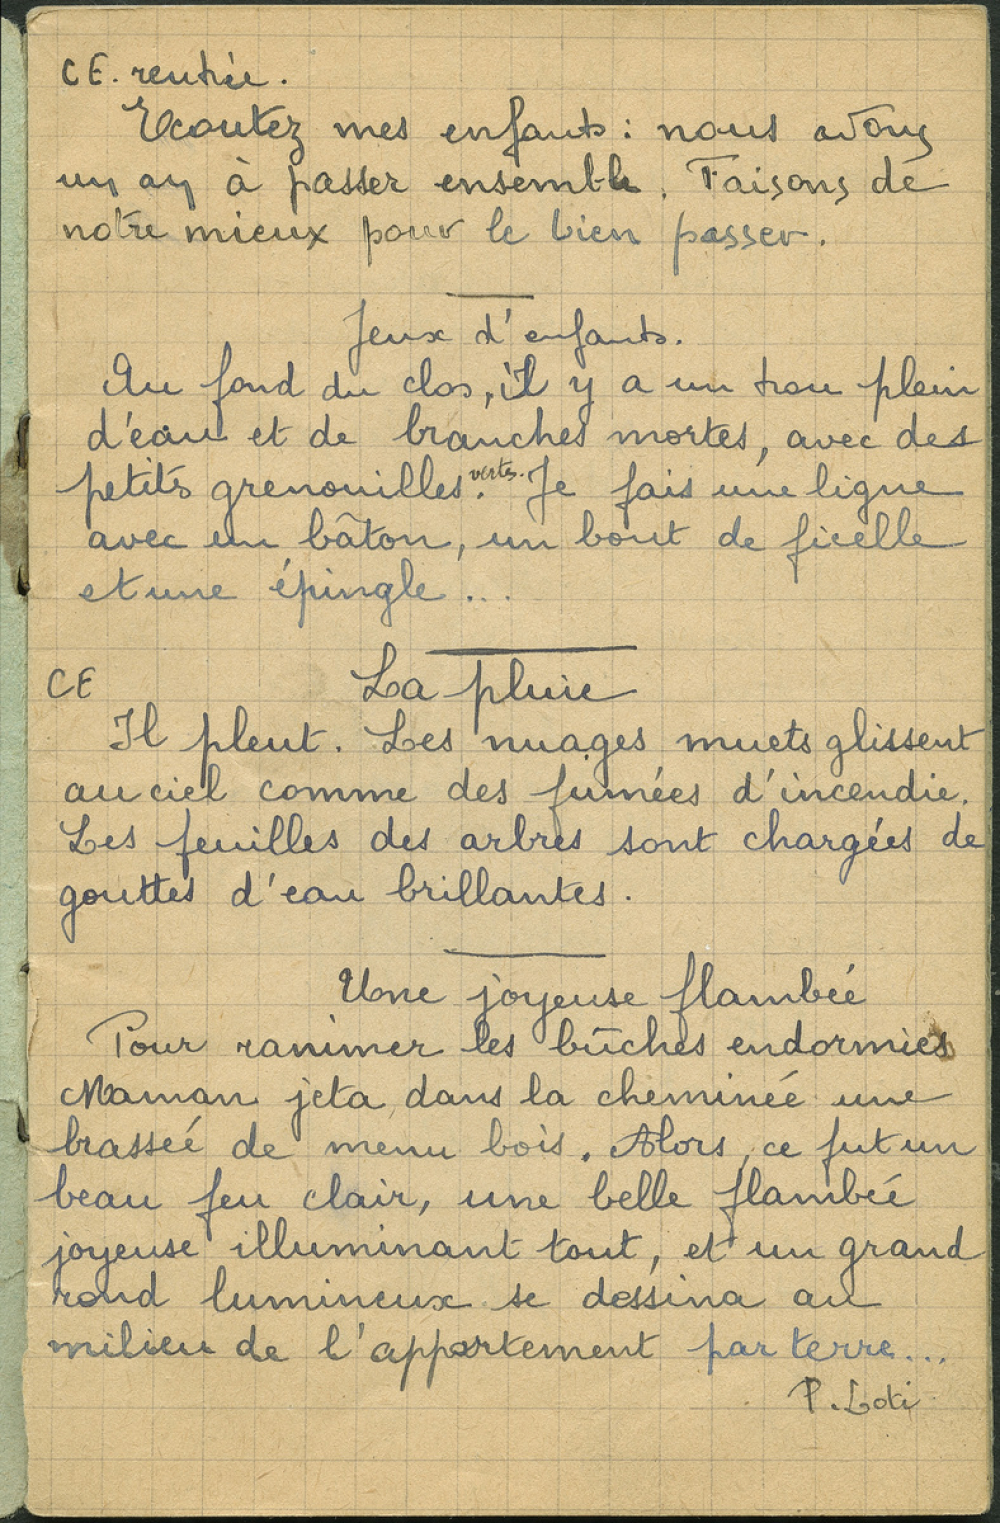 CE. rentrée.
Ecoutez mes enfants : nous avons
un an à passer ensemble. Faisons de
notre mieux pour le bien passer.
Jeux d'enfants.
Au fond du clos, il y a un trou plein
d'eau et de branches mortes, avec des
petits grenouilles vertes. Je fais une ligne
avec un bâton, un bout de ficelle
et une épingle ...
CE La pluie
Il pleut. Les nuages muets glissent
au ciel comme des fumées d'incendie.
Les feuilles des arbres sont chargées de
gouttes d'eau brillantes.
Une joyeuse flambée
Pour ranimer les bûches endormies
Maman jeta dans la cheminée une
brassée de menu bois. Alors, ce fut un
beau feu clair, une belle flambée
joyeuse illuminant tout, et un grand
rond lumineux se dessina au
milieu de l'appartement par terre...
P. Loti